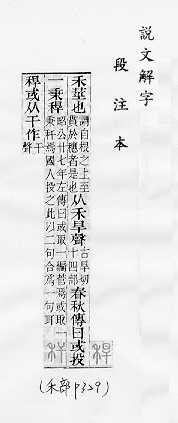 說文解字
段注本
禾莖也謂自根之上至貫於穗者是也从禾旱聲古旱切十四部春秋傳曰或投
一秉稈昭公廿七年左傳曰或取一編菅焉或取一秉秆焉國人投之此以二句合爲一句耳
稈或从干作干聲
稈
秆
(禾部 p329)